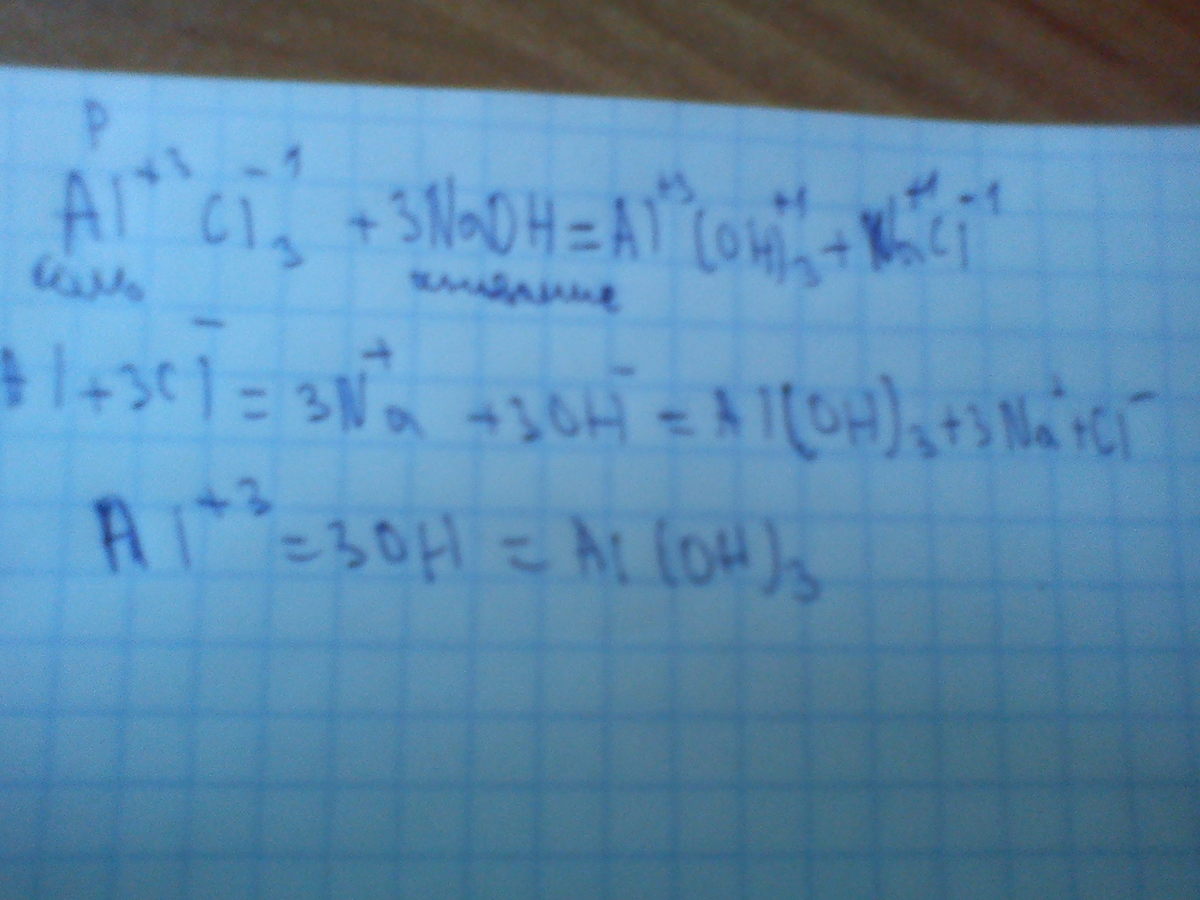 р
Al⁺³Cl₃⁻¹ + 3NaOH = Al⁺³(OH)₃⁺¹ + Na⁺¹Cl⁻¹
соль
Al + 3Cl⁻ = 3Na⁺ + 3OH⁻ = Al(OH)₃ + 3Na⁺ + Cl⁻
Al⁺³ = 3OH = Al(OH)₃